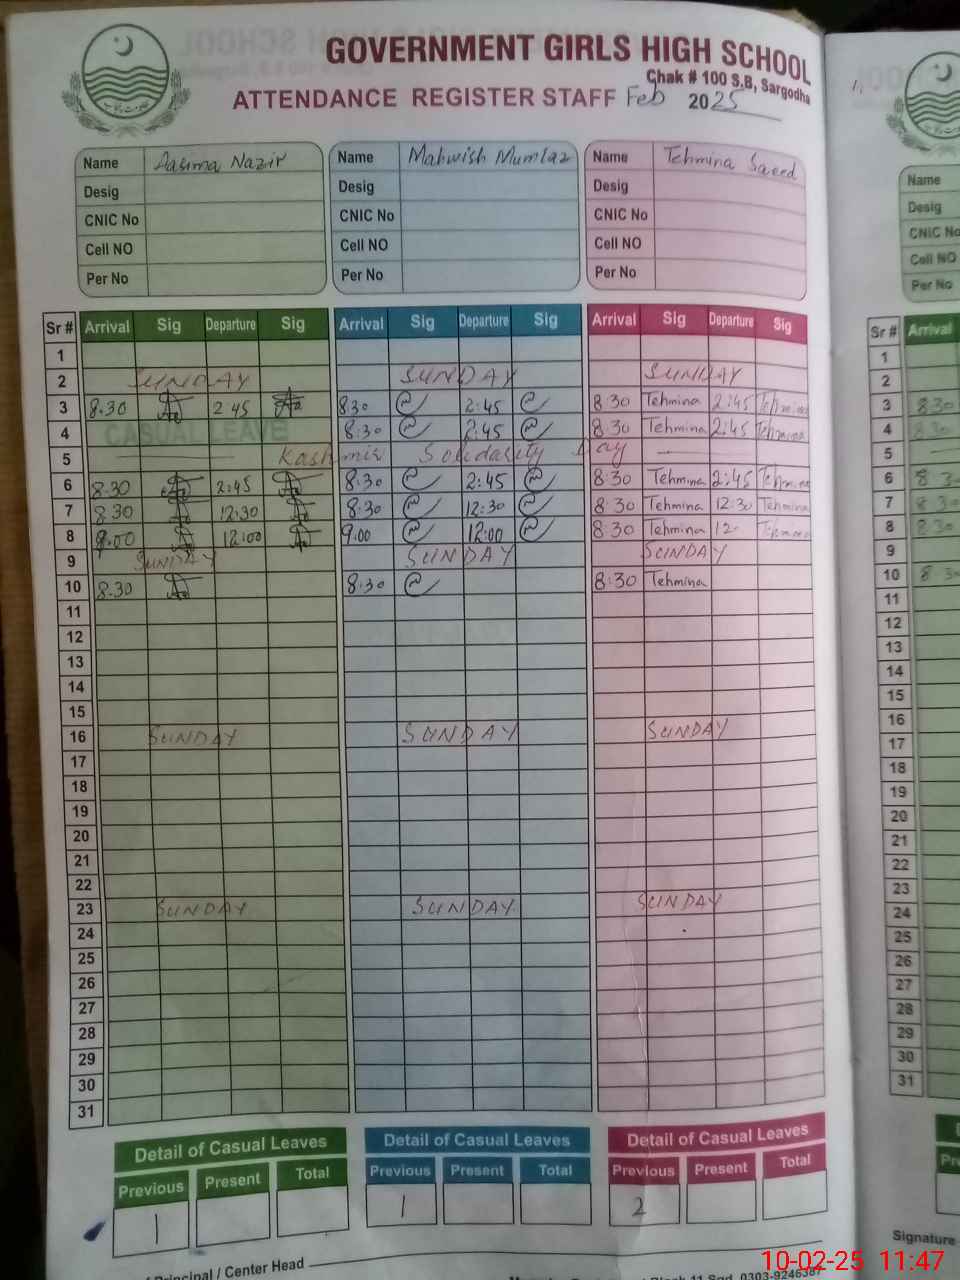 GOVERNMENT GIRLS HIGH SCHOOL
Chak # 100 S.B, Sargodha
ATTENDANCE REGISTER STAFF Feb 2025
Name Aasima Nazir Name Mahwish Mumtaz Name Tehmina Saeed
Desig Desig Desig
CNIC No CNIC No CNIC No
Cell NO Cell NO Cell NO
Per No Per No Per No
Sr # Arrival Sig Departure Sig Arrival Sig Departure Sig Arrival Sig Departure Sig
1
2 SUNDAY SUNDAY SUNDAY
3 8.30 2 45 830 2:45 8 30 Tehmina 2:45 Tehmina
4 CASUAL LEAVE 8:30 2:45 8 30 Tehmina 2:45 Tehmina
5 Kashmir Solidasity Day
6 8.30 2:45 8:30 2:45 8:30 Tehmina 2:45 Tehmina
7 8 30 12:30 8:30 12:30 8:30 Tehmina 12:30 Tehmina
8 9.00 12:00 9.00 12:00 8:30 Tehmina 12- Tehmina
9 SUNDAY SUNDAY SUNDAY
10 8.30 8:30 8:30 Tehmina
11
12
13
14
15
16 SUNDAY SUNDAY SUNDAY
17
18
19
20
21
22
23 SUNDAY SUNDAY SUNDAY
24
25
26
27
28
29
30
31
Detail of Casual Leaves Detail of Casual Leaves Detail of Casual Leaves
Previous Present Total Previous Present Total Previous Present Total
1 1 2
Principal / Center Head
0303-9246387
Name
Desig
CNIC No
Cell NO
Per No
Sr # Arrival
1
2
3 8:30
4 8:30
5
6 8 3
7 8:30
8 8:30
9
10 8 30
11
12
13
14
15
16
17
18
19
20
21
22
23
24
25
26
27
28
29
30
31
Signature
10-02-25 11:47